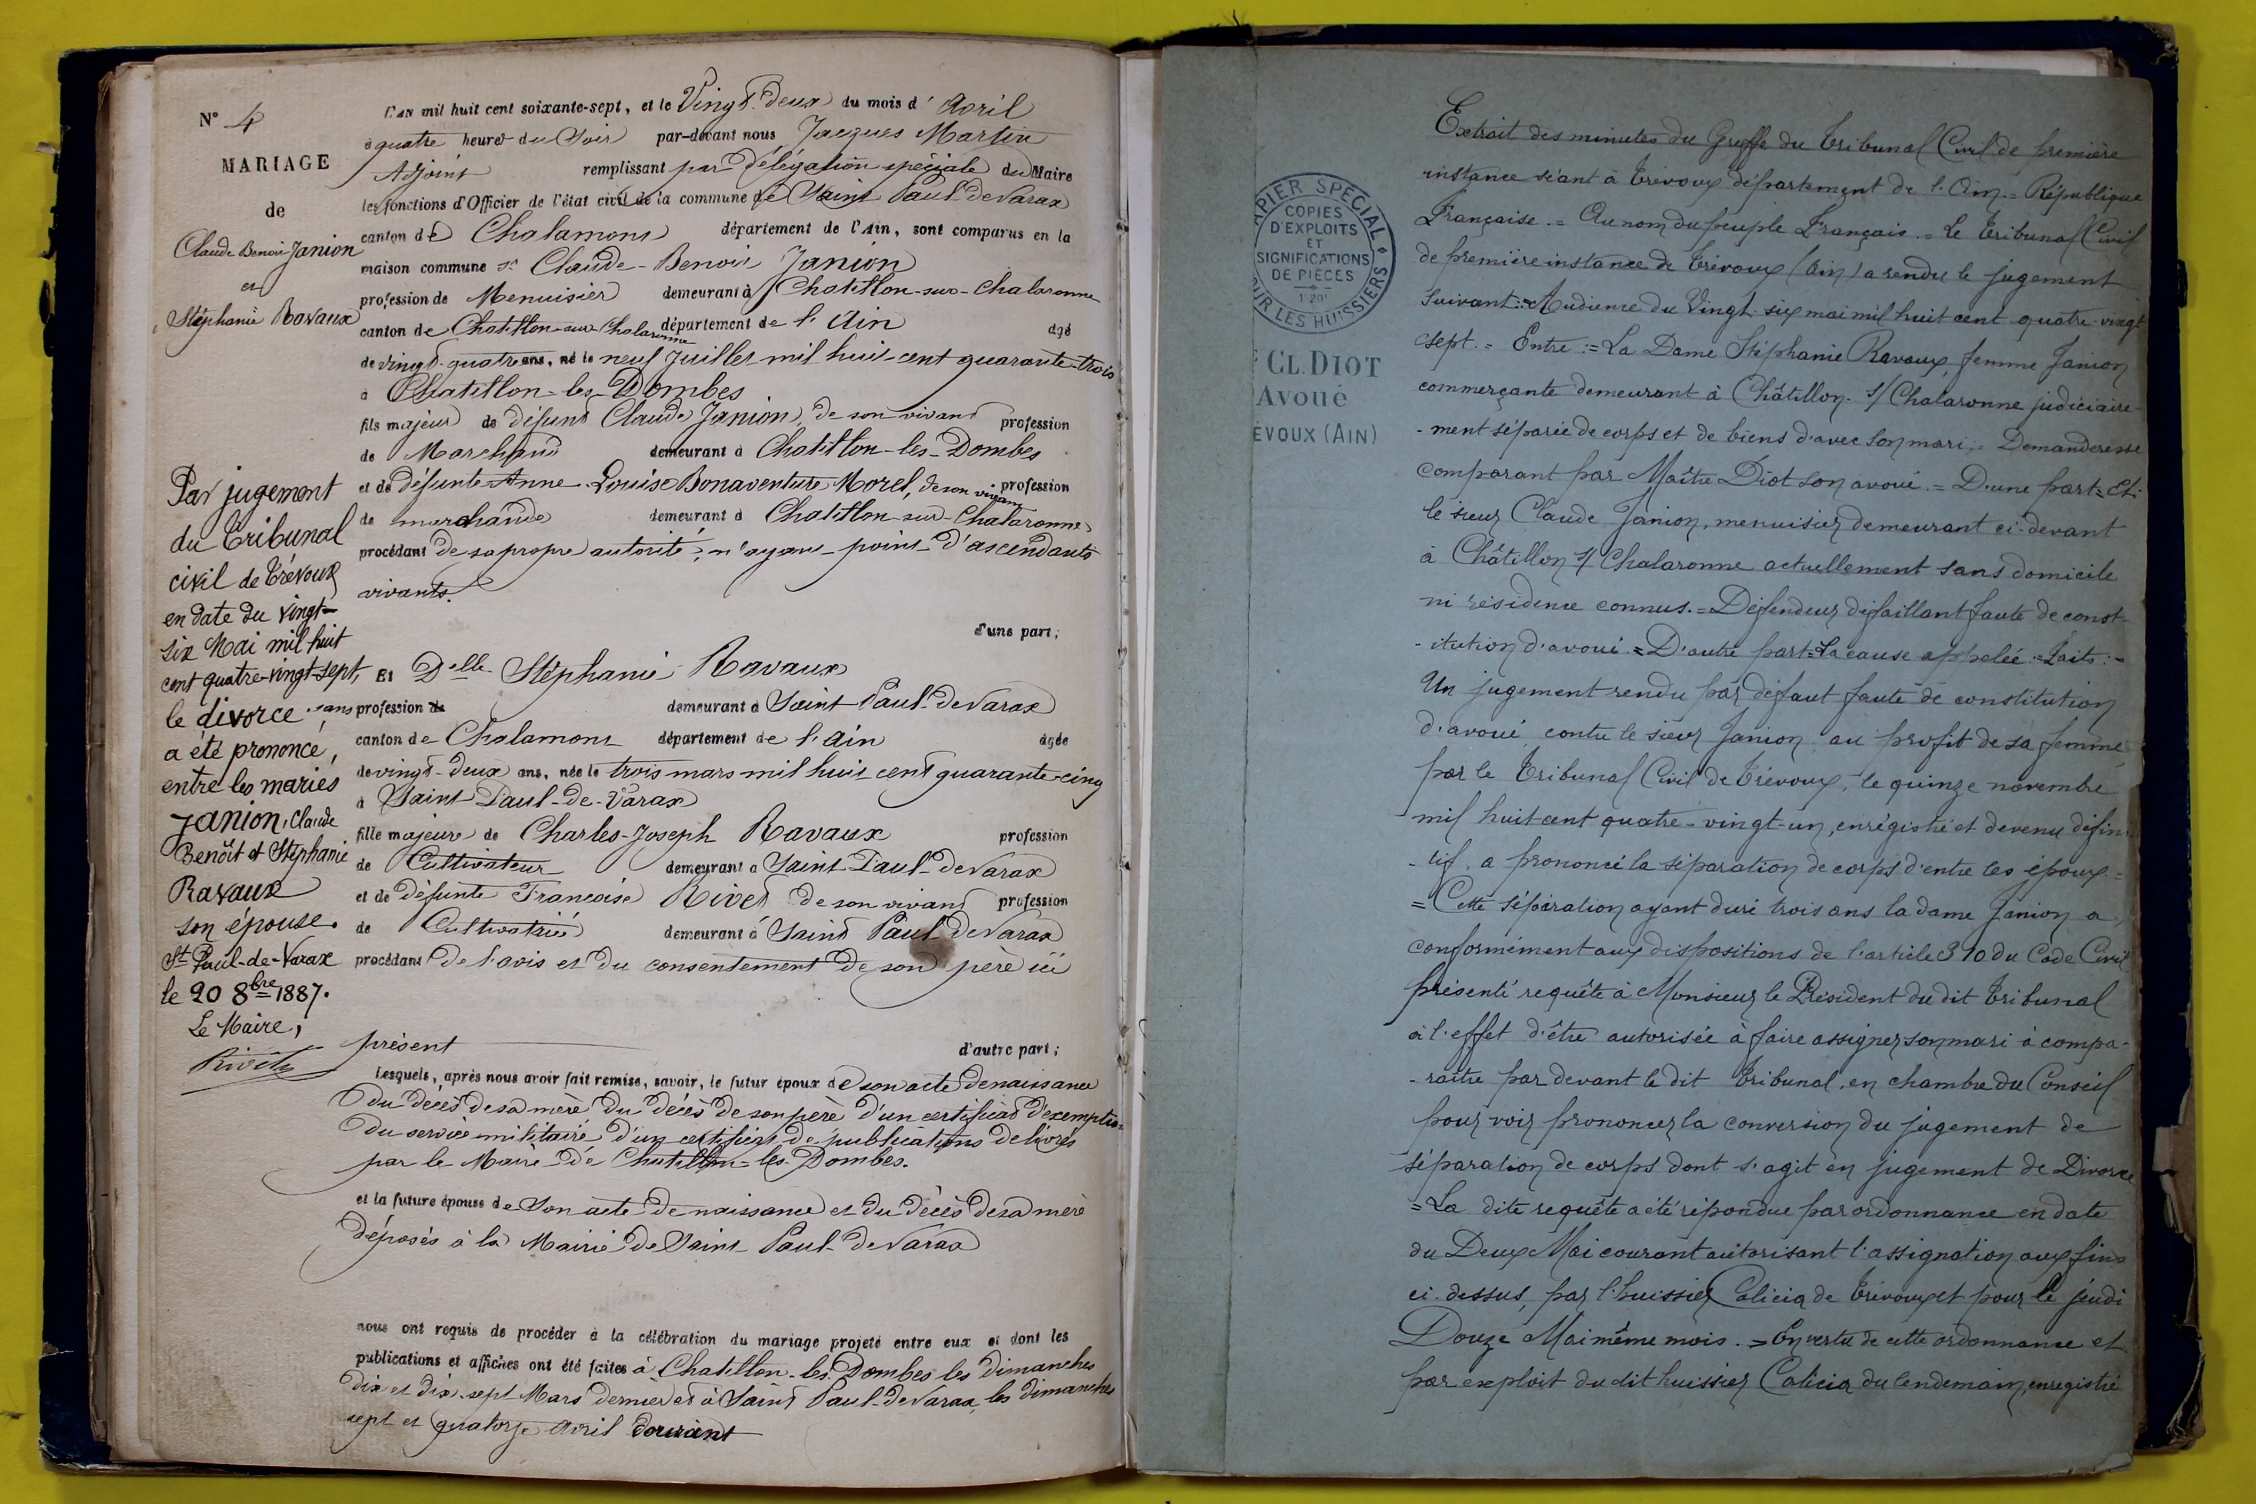 N° 4
MARIAGE
de
Claude Benoit Janion
et
Stéphanie Ravaux
L'an mil huit cent soixante-sept, et le Vingt-deux du mois d'avril
à quatre heures du Soir par-devant nous Jacques Martin
Adjoint remplissant par délégation spéciale du Maire
les fonctions d'Officier de l'état civil de la commune de Saint Paul de Varax
canton de Chalamont département de l'Ain, sont comparus en la
maison commune Sr Claude-Benoit Janion
profession de Menuisier demeurant à Chatillon-sur-Chalaronne
canton de Chatillon-sur-Chalaronne département de l'Ain âgé
de vingt-quatre ans, né le neuf Juillet mil huit cent quarante-trois
à Chatillon-les-Dombes
fils majeur de défunt Claude Janion, de son vivant profession
de Marchand demeurant à Chatillon-les-Dombes
et de défunte Anne Louise Bonaventure Morel, de son vivant profession
de marchande demeurant à Chatillon-sur-Chalaronne
procédant de sa propre autorité, n'ayant point d'ascendants
vivants.
d'une part;
Et Delle Stéphanie Ravaux
sans profession de demeurant à Saint Paul de Varax
canton de Chalamont département de l'Ain âgée
de vingt-deux ans, née le trois mars mil huit cent quarante-cinq
à Saint Paul-de-Varax
fille majeure de Charles-Joseph Ravaux profession
de Cultivateur demeurant à Saint Paul de Varax
et de défunte Francoise Rivet de son vivant profession
de Cultivatrice demeurant à Saint Paul de Varax
procédant de l'avis et du consentement de son père ici
présent d'autre part;
Lesquels, après nous avoir fait remise, savoir, le futur époux de son acte de naissance
du décès de sa mère du décès de son père d'un certificat d'exemption
du service militaire d'un certificat de publications délivrés
par le Maire de Chatillon-les-Dombes.
et la future épouse de son acte de naissance et du décès de sa mère
déposés à la Mairie de Saint Paul de Varax
nous ont requis de procéder à la célébration du mariage projeté entre eux et dont les
publications et affiches ont été faites à Chatillon-les-Dombes les dimanches
dix et dix-sept Mars dernier et à Saint Paul de Varax, les dimanches
sept et quatorze avril courant
Par jugement
du Tribunal
civil de Trévoux
en date du vingt-
six Mai mil huit
cent quatre-vingt-sept,
le divorce
a été prononcé,
entre les mariés
Janion, Claude
Benoît et Stéphanie
Ravaux
son épouse.
St Paul-de-Varax
le 20 8bre 1887.
Le Maire,
Rivet
PAPIER SPÉCIAL
COPIES
D'EXPLOITS
ET
SIGNIFICATIONS
DE PIÈCES
POUR LES HUISSIERS
CL. DIOT
Avoué
ÉVOUX (AIN)
Extrait des minutes du Greffe du Tribunal Civil de première
instance séant à Trévoux département de l'Ain = République
Française. = Au nom du peuple Français. = Le Tribunal Civil
de première instance de Trévoux (Ain) a rendu le jugement
suivant: = Audience du Vingt-six mai mil huit cent quatre-vingt
sept. = Entre: = La Dame Stéphanie Ravaux, femme Janion
commerçante demeurant à Châtillon-s/Chalaronne judiciaire-
-ment séparée de corps et de biens d'avec son mari. = Demanderesse
comparant par Maître Diot son avoué. = D'une part = Et:
le sieur Claude Janion, menuisier demeurant ci-devant
à Châtillon s/ Chalaronne actuellement sans domicile
ni résidence connus. = Défendeur défaillant faute de const-
-itution d'avoué. = D'autre part = La cause appelée: = Faits: =
Un jugement rendu par défaut faute de constitution
d'avoué contre le sieur Janion au profit de sa femme
par le Tribunal Civil de Trévoux, le quinze novembre
mil huit cent quatre-vingt-un, enrégistré et devenu défini-
-tif a prononcé la séparation de corps d'entre les époux =
= Cette séparation ayant duré trois ans la dame Janion a
conformément aux dispositions de l'article 310 du Code Civil
présenté requête à Monsieur le Président du dit Tribunal
à l'effet d'être autorisée à faire assigner son mari à compa-
-raître par devant le dit Tribunal en chambre du Conseil
pour voir prononcer la conversion du jugement de
séparation de corps dont s'agit en jugement de Divorce
= La dite requête a été répondue par ordonnance en date
du Deux Mai courant autorisant l'assignation aux fins
ci-dessus, par l'huissier Calicia de Trévoux et pour le jeudi
Douze Mai même mois. = En vertu de cette ordonnance et
par exploit du dit huissier Calicia du lendemain, enregistré